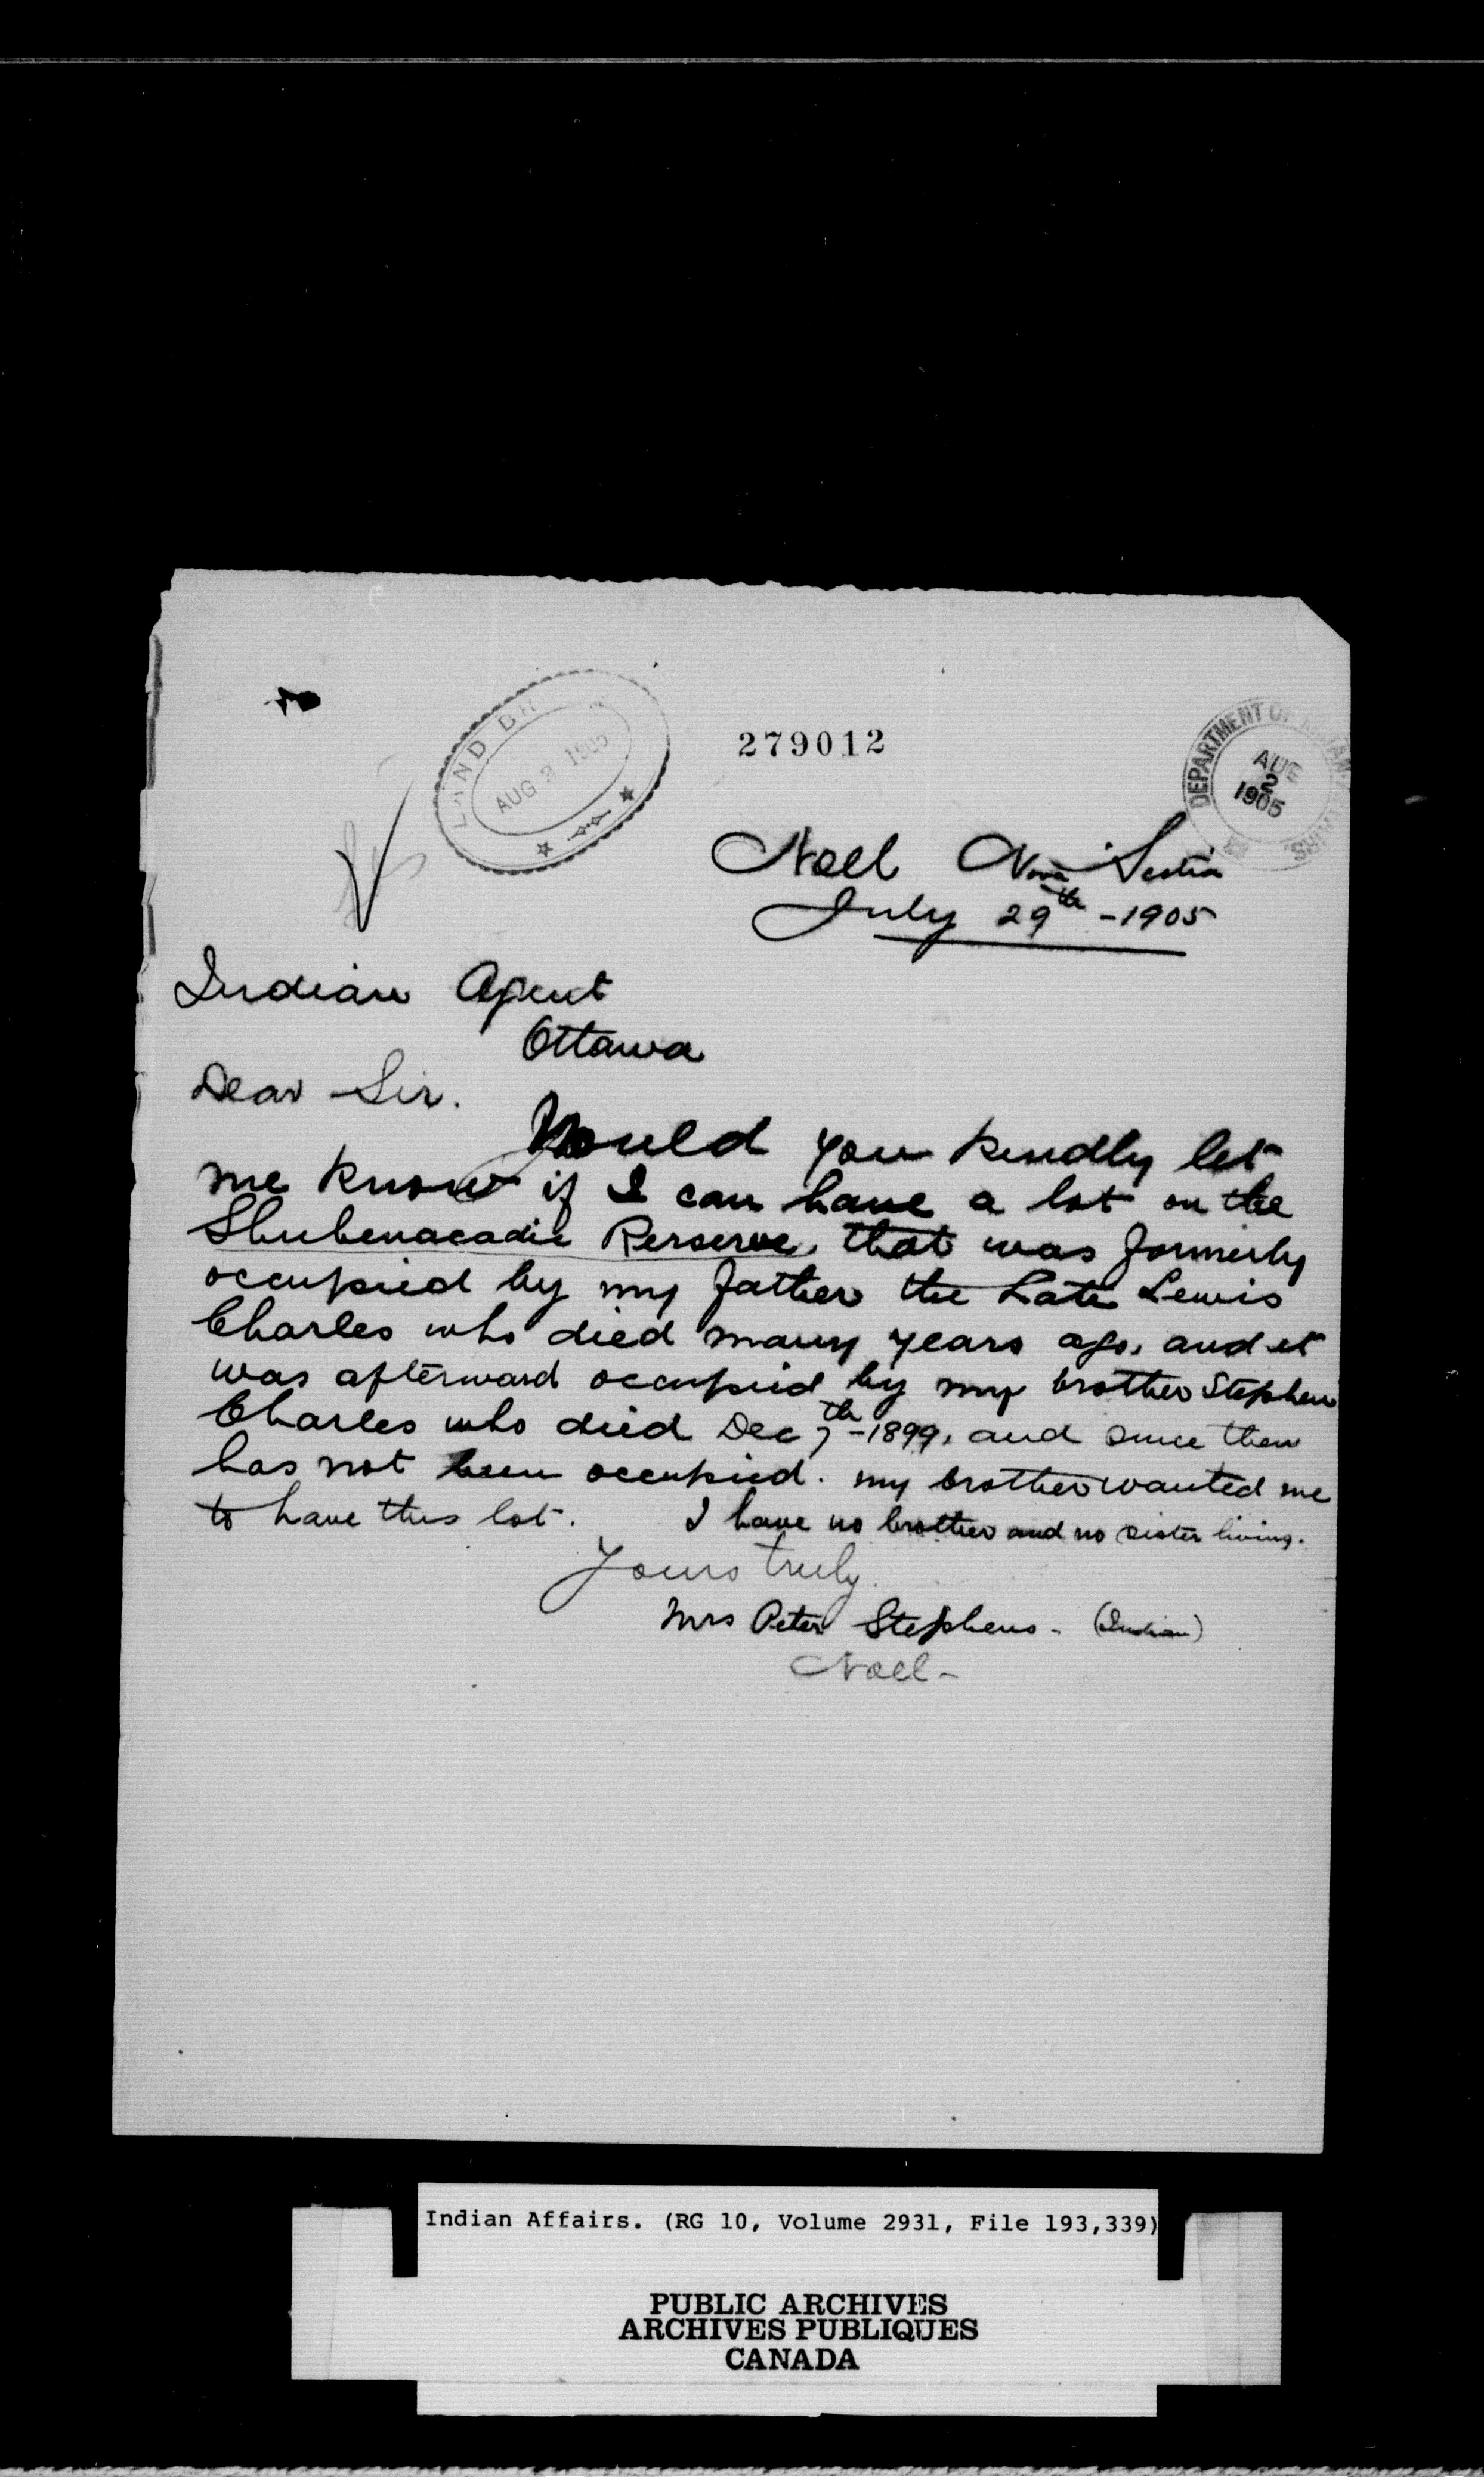 LAND BR
AUG 3 1905
279012
DEPARTMENT OF INDIAN AFFAIRS.
AUG
2
1905
Noel Nova Scotia
July 29th - 1905
Indian Agent
Ottawa
Dear Sir.
Would you kindly let
me know if I can have a lot on the
Shubenacadie Rerserve, that was formerly
occupied by my father the Late Lewis
Charles who died many years ago, and it
was afterward occupied by my brother Stephen
Charles who died Dec 7th - 1899, and since then
has not been occupied. my brother wanted me
to have this lot. I have no brother and no sister living.
Yours truly.
Mrs Peter Stephens - (Indian)
Noel -
Indian Affairs. (RG 10, Volume 2931, File 193,339)
PUBLIC ARCHIVES
ARCHIVES PUBLIQUES
CANADA